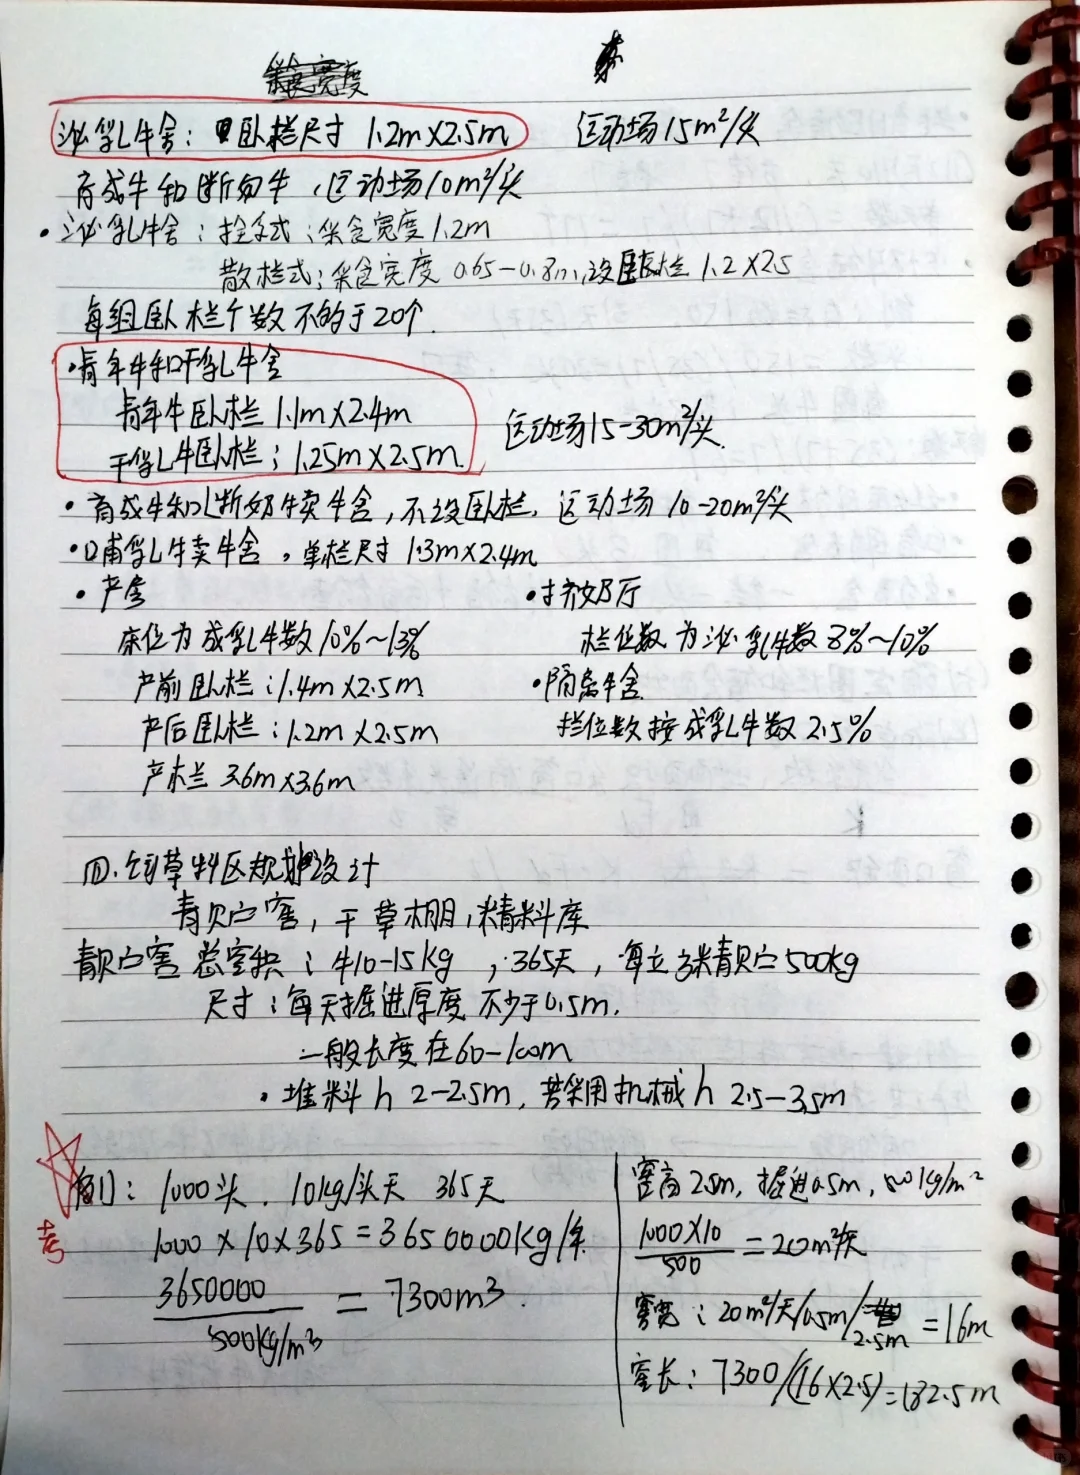 泌乳牛舍：卧栏尺寸 1.2m×2.5m 运动场15m²/头
育成牛和断奶牛，运动场10m²/头
·泌乳牛舍：拴系式：采食宽度1.2m
散栏式：采食宽度 0.65-0.8m,设卧栏 1.2×2.5
每组卧栏个数不的于20个.
·青年牛和干乳牛舍
青年牛卧栏 1.1m×2.4m
干乳牛卧栏：1.25m×2.5m.
运动场15-30m²/头.
·育成牛和断奶犊牛舍,不设卧栏, 运动场 10-20m²/头
·哺乳牛犊牛舍，单栏尺寸 1.3m×2.4m
·产房
床位为成乳牛数10%~13%
产前卧栏：1.4m×2.5m
产后卧栏：1.2m×2.5m
产栏 3.6m×3.6m
·挤奶厅
栏位数为泌乳牛数8%~10%
·隔离牛舍
拦位数按成乳牛数2.5%
四.饲草料区规划设计
青贮窖，干草棚，精料库
青贮窖总容积：牛10-15kg，365天，每立方米青贮500kg
尺寸：每天掘进厚度不少于0.5m.
一般长度在60-100m
·堆料h 2-2.5m, 若采用机械h 2.5-3.5m
考
例1：1000头. 10kg/头天 365天
1000×10×365=3650000kg/年
3650000/500kg/m3 = 7300m3.
窖高2.5m, 掘进0.5m, 500kg/m-2
1000×10/500 =20m³/天
窖宽：20m³/天/0.5m/2.5m =16m
窖长：7300/(16×2.5)=182.5m